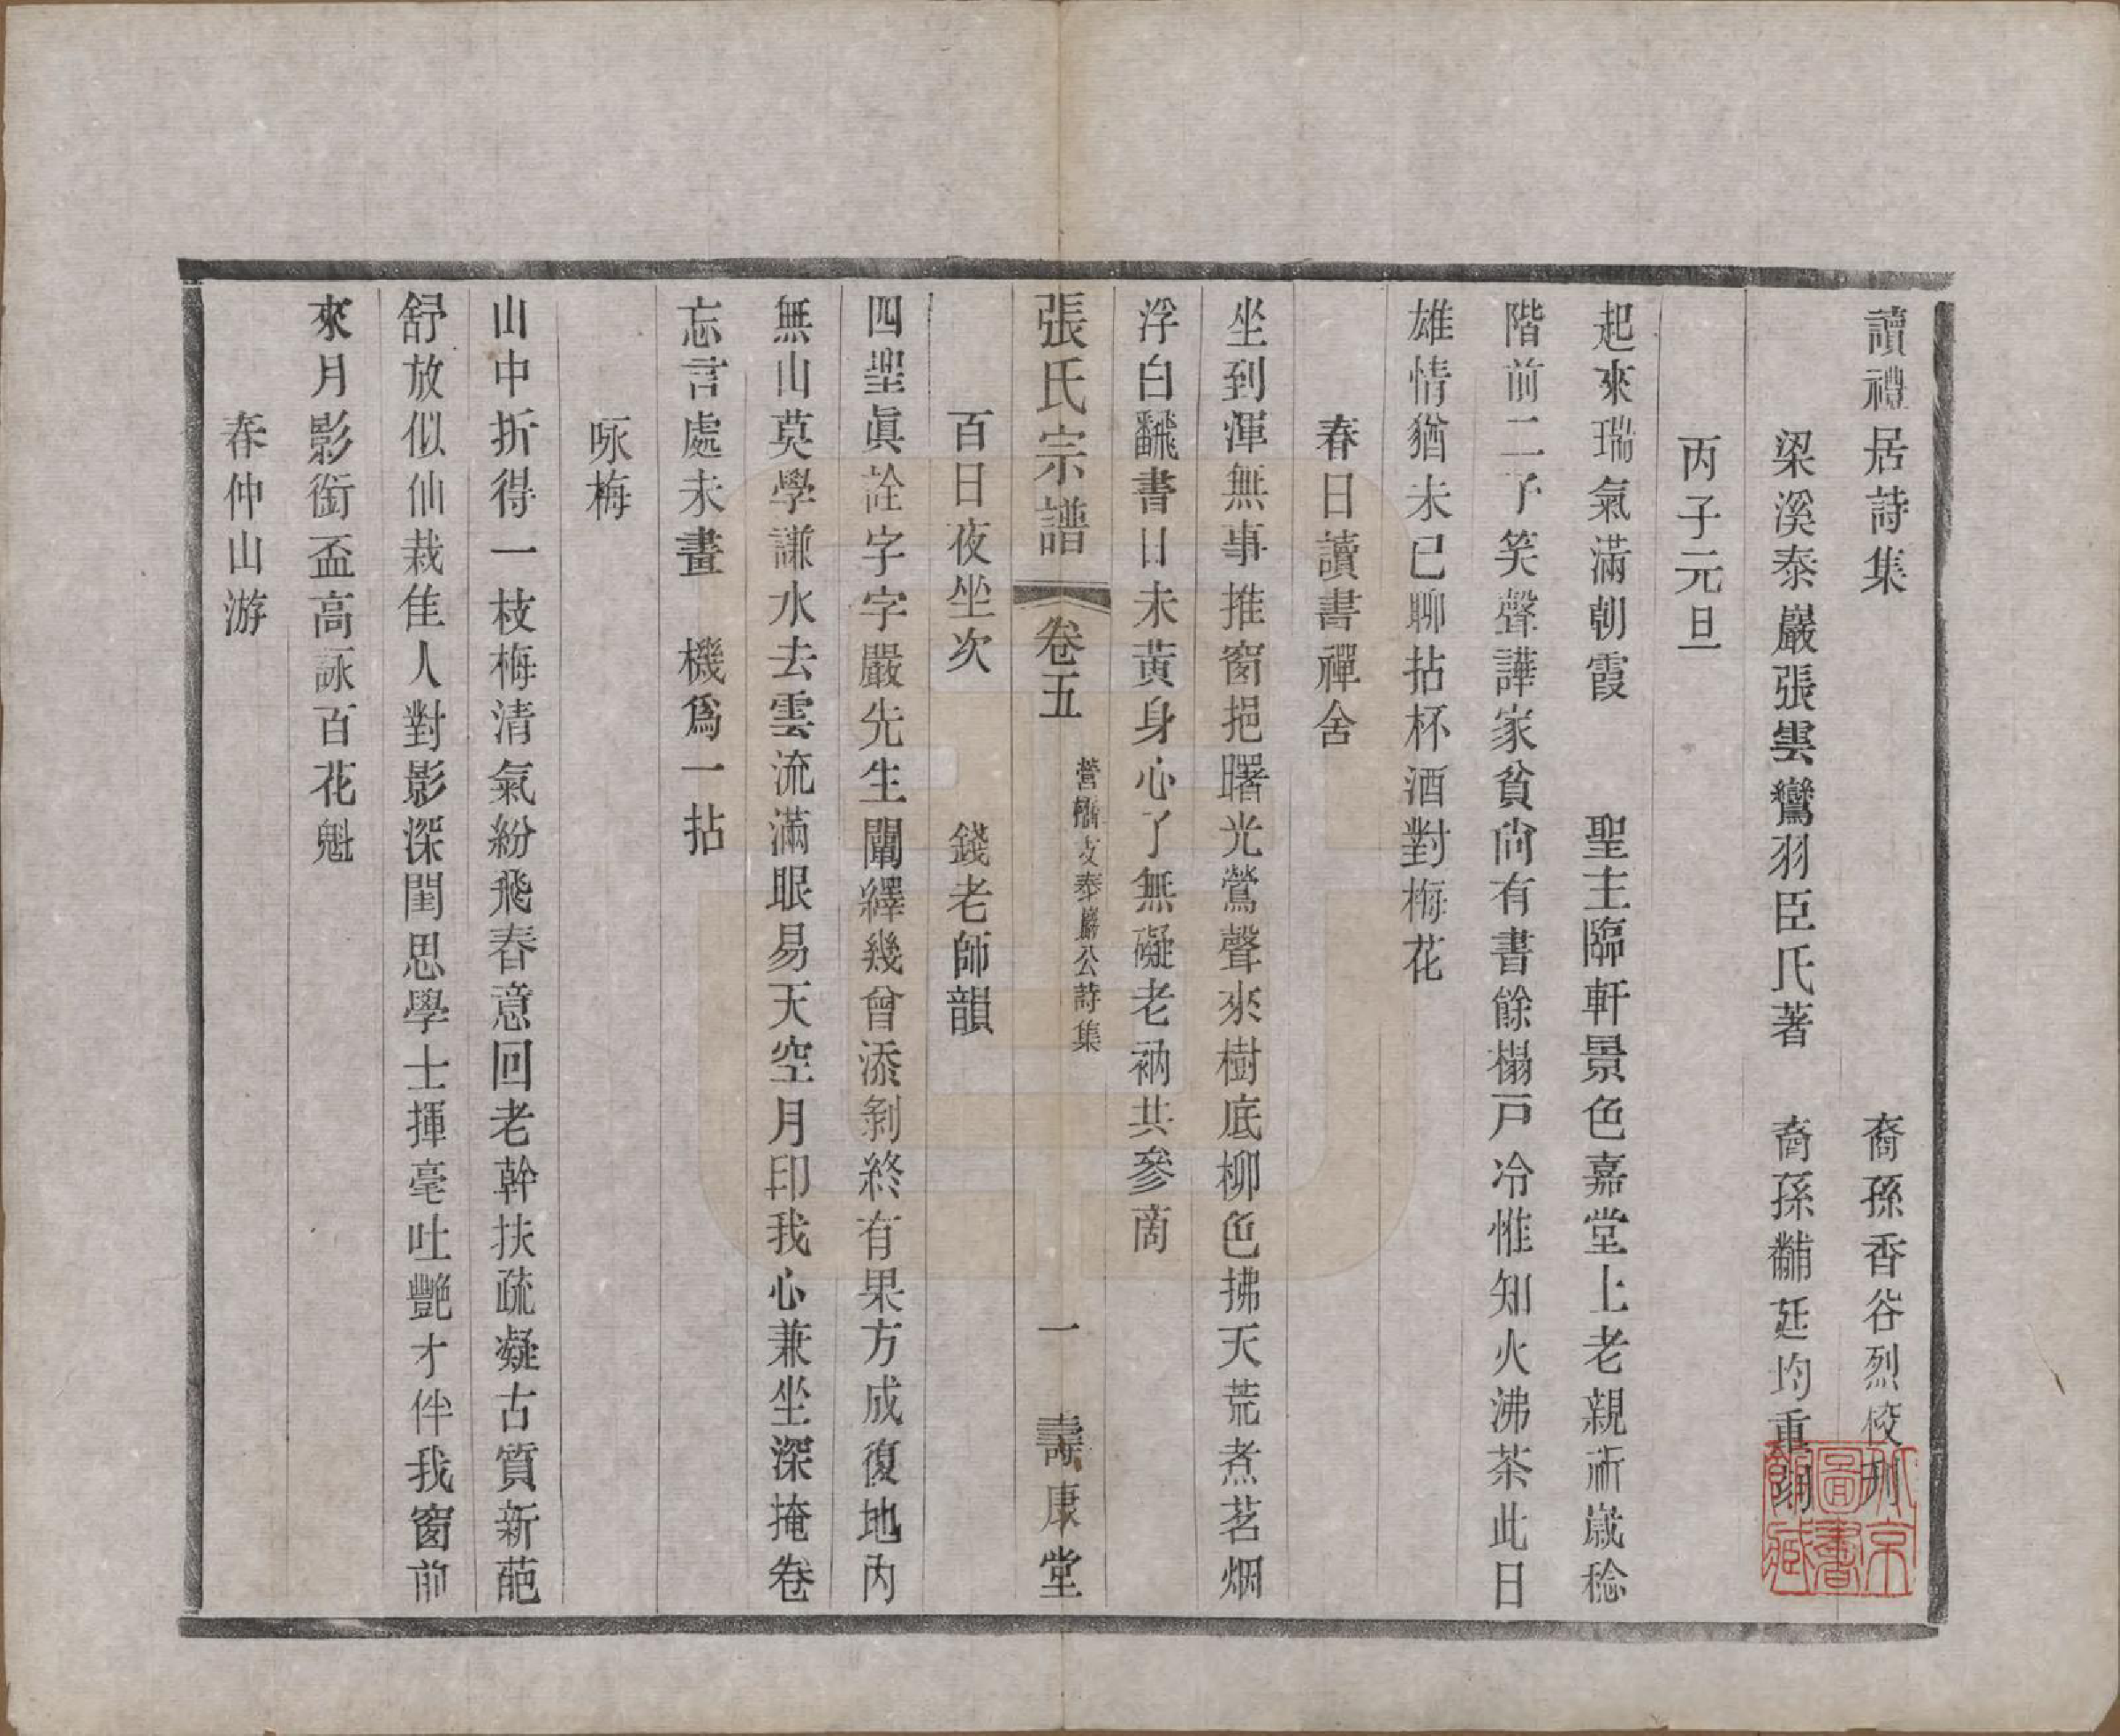 讀禮居詩集 裔孫香谷烈校刊
梁溪泰巖張雲鸞羽臣氏著 裔孫黼廷均重
丙子元旦
起來瑞氣滿朝霞 聖主臨軒景色嘉堂上老親祈歲稔
階前二子笑聲譁家貧尙有書餘榻戸冷惟知火沸茶此日
雄情猶未已聊拈杯酒對梅花
春日讀書禪舍
坐到渾無事推窗挹曙光鶯聲來樹底柳色拂天荒煮茗烟
浮白飜書日未黃身心了無礙老衲共參啇
張氏宗譜 卷五 營橋支泰巖公詩集 一 壽康堂
百日夜坐次 錢老師韻
四聖眞詮字字嚴先生闡繹幾曾添剝終有果方成復地內
無山莫學謙水去雲流滿眼易天空月印我心兼坐深掩卷
忘言處未畫 機爲一拈
咏梅
山中折得一枝梅清氣紛飛春意回老幹扶疏凝古質新葩
舒放似仙栽佳人對影深閨思學士揮毫吐艷才伴我窗前
來月影銜盃高詠百花魁
春仲山游
北京圖書館藏